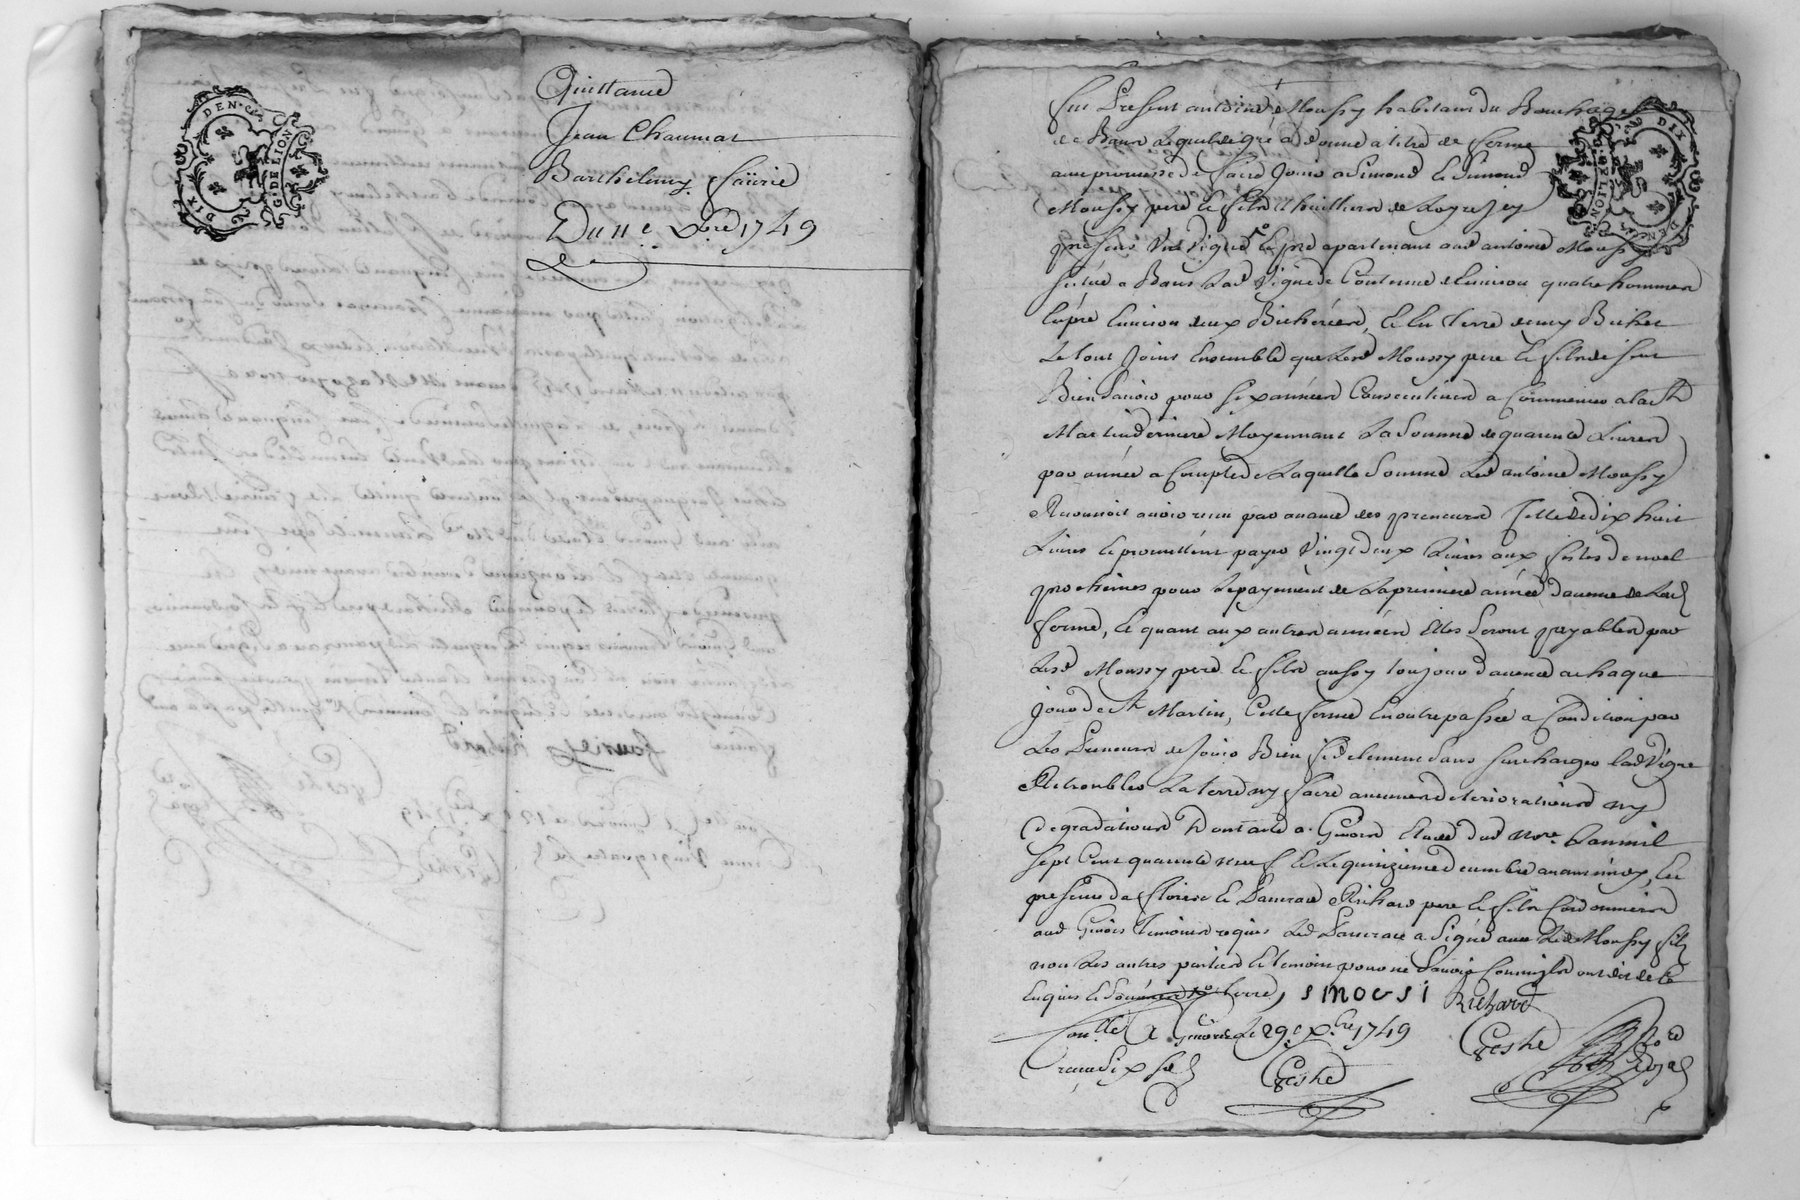 DIX DEN.ers
G. DE LION
Quittance
Jean Chaumat
Barthelemy Faürie
Du 11e Xbre 1749
Fut Present antoine Moussy habitant du Bouchage
de Bans Lequel de gré a donné a titre de ferme
avec promesse de faire Jouir a Simond Le Simond
Moussy pere et fils thuilliers de Logrezey
presens Une Vigne et pré apartenant aud antoine Moussy
scitué a Bans Lad Vigne de Contenue denviron quatre hommes
Le pré Environ deux Bicherées, et En Terre deux Bichet
Le tout Joint Ensemble que Lesd Moussy pere et fils disent
Bien Savoir pour six années Consecutives a Commencer a la St
Martin derniere Moyennant La Somme de quarente Livres
par année a Compte de Laquelle Somme Led antoine Moussy
Reconnoit avoir reçu par avance des preneurs Celle de dix huit
Livres et promettent payer Vingt deux Livres aux festes de noel
prochaines pour Le payement de La premiere année d'avance de Lad
ferme, et quant aux autres années Elles Seront payables par
Lesd Moussy pere et fils aussy toujour d'avance a chaque
jour de St Martin, Cette ferme En outre passée a Condition par
Les Preneurs de Jouir Bien fidelement Sans surcharger Lad Vigne
Retroubler La terre ny faire aucunes deteriorations ny
degradations Dont acte a Givors Etude dud Nore. L'an mil
sept Cent quarente neuf et Le quinzieme decembre avant midy, En
presence de Floris et Pancrace Richard pere et fils Cordonniers
aud Givors Temoins requis Led Pancrace a Signé avec Led Moussy fils
non Les autres parties et temoin pour ne Savoir Comme ils ont dit de ce
Enquis et
SMOUSI Richard
Conllé a Givors Le 29e Xbre 1749
Reçu dix sols
Geshe
Geshe
Nore Royal